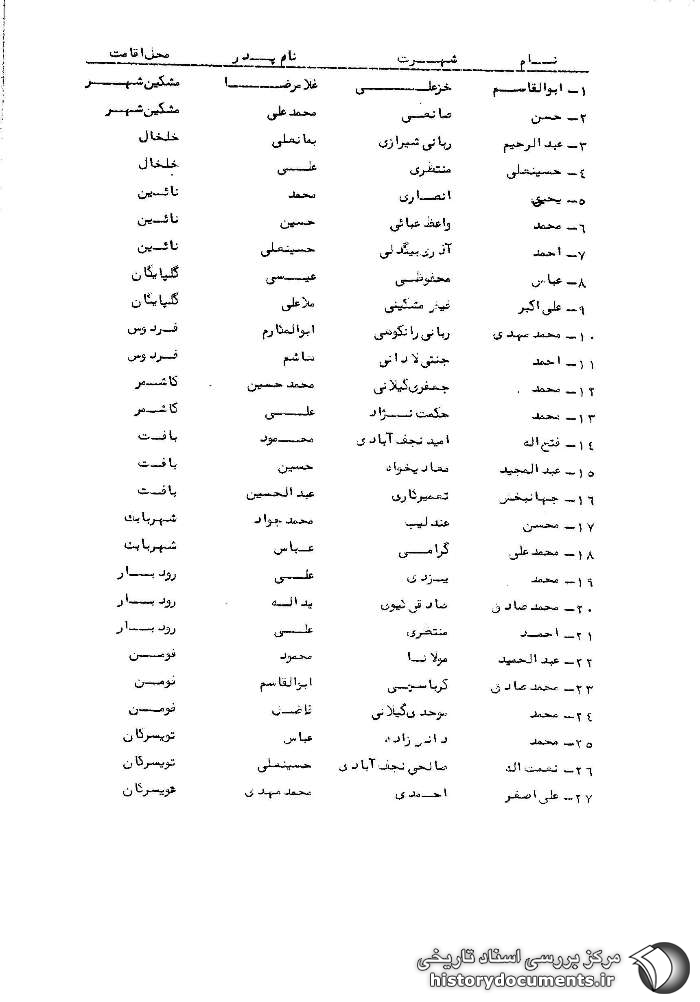 نام شهرت نام پدر محل اقامت
۱- ابوالقاسم خزعلی غلامرضا مشکین‌شهر
۲- حسن صانعی محمدعلی مشکین‌شهر
۳- عبدالرحیم ربانی شیرازی خلخال
۴- حسینعلی منتظری علی خلخال
۵- یحیی انصاری محمد نائین
۶- محمد واعظ عبائی حسین نائین
۷- احمد آذری بیگدلی حسینعلی نائین
۸- عباس محفوظی عیسی گلپایگان
۹- علی اکبر فیض مشکینی ملاعلی گلپایگان
۱۰- محمد مهدی ربانی رانکوهی ابوالمکارم فردوس
۱۱- احمد جنتی لادانی هاشم فردوس
۱۲- محمد جعفری گیلانی محمد حسین کاشمر
۱۳- محمد حکمت نژاد علی کاشمر
۱۴- فتح اله امید نجف آبادی محمود بافت
۱۵- عبدالمجید معادیخواه حسین بافت
۱۶- جهانبخش تعمیرکاری عبدالحسین بافت
۱۷- محسن عندلیب محمد جواد شهربابک
۱۸- محمد علی گرامی عباس شهربابک
۱۹- محمد یزدی علی رودبار
۲۰- محمد صادق صادقی گیوی یداله رودبار
۲۱- احمد منتظری علی رودبار
۲۲- عبدالحمید مولانا محمود فومن
۲۳- محمد صادق کرباسچی ابوالقاسم فومن
۲۴- محمد موحدی گیلانی فاضل فومن
۲۵- محمد دانش زاده عباس تویسرکان
۲۶- نعمت اله صالحی نجف آبادی حسینعلی تویسرکان
۲۷- علی اصغر احمدی محمد مهدی تویسرکان
مرکز بررسی اسناد تاریخی
historydocuments.ir